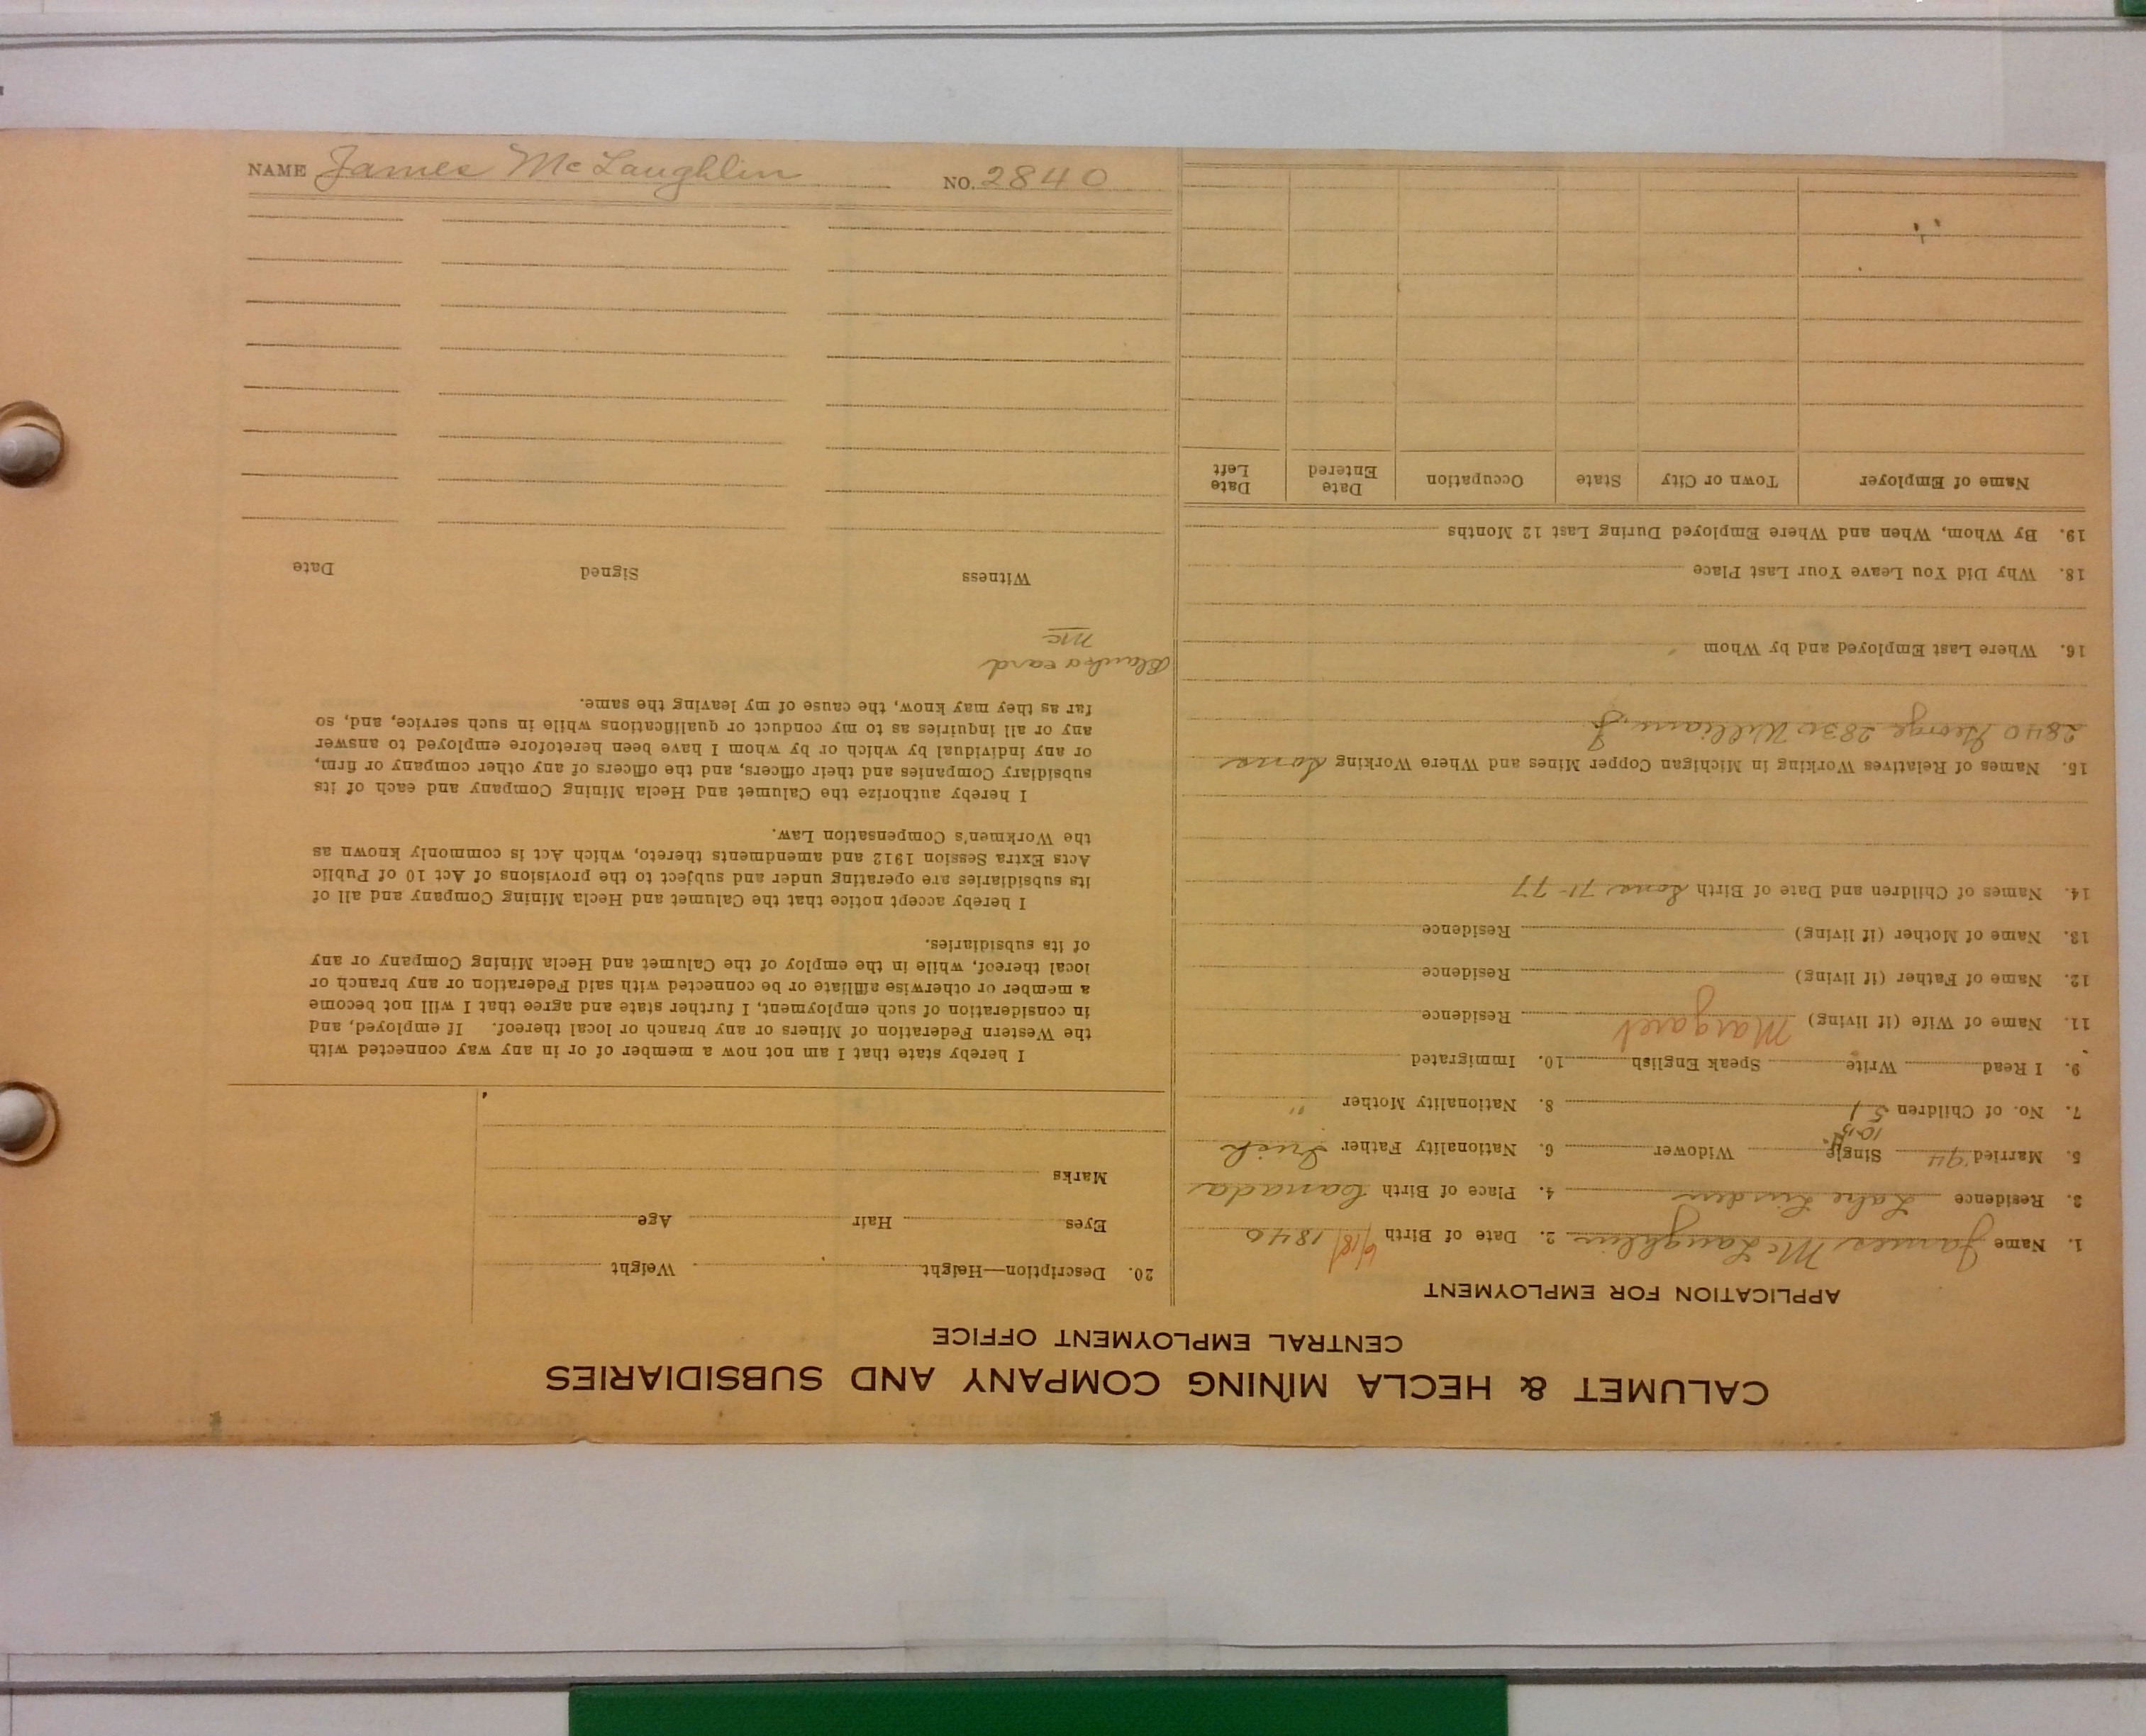 CALUMET & HECLA MINING COMPANY AND SUBSIDIARIES
CENTRAL EMPLOYMENT OFFICE
APPLICATION FOR EMPLOYMENT
1. Name James McLaughlin 2. Date of Birth 6/18/1840
3. Residence Lake Linden 4. Place of Birth Canada
5. Married 94 Single Widower 6. Nationality Father Irish
7. No. of Children 5 1 8. Nationality Mother "
9. I Read Write Speak English 10. Immigrated
11. Name of Wife (if living) Margaret Residence
12. Name of Father (if living) Residence
13. Name of Mother (if living) Residence
14. Names of Children and Date of Birth Sons 71-77
15. Names of Relatives Working in Michigan Copper Mines and Where Working Sons
2840 George 2830 William J.
16. Where Last Employed and by Whom
18. Why Did You Leave Your Last Place
19. By Whom, When and Where Employed During Last 12 Months
Name of Employer Town or City State Occupation Date Entered Date Left
20. Description—Height Weight
Eyes Hair Age
Marks
I hereby state that I am not now a member of or in any way connected with
the Western Federation of Miners or any branch or local thereof. If employed, and
in consideration of such employment, I further state and agree that I will not become
a member or otherwise affiliate or be connected with said Federation or any branch or
local thereof, while in the employ of the Calumet and Hecla Mining Company or any
of its subsidiaries.
I hereby accept notice that the Calumet and Hecla Mining Company and all of
its subsidiaries are operating under and subject to the provisions of Act 10 of Public
Acts Extra Session 1912 and amendments thereto, which Act is commonly known as
the Workmen's Compensation Law.
I hereby authorize the Calumet and Hecla Mining Company and each of its
subsidiary Companies and their officers, and the officers of any other company or firm,
or any individual by which or by whom I have been heretofore employed to answer
any or all inquiries as to my conduct or qualifications while in such service, and, so
far as they may know, the cause of my leaving the same.
card
Mc
Witness Signed Date
NAME James McLaughlin NO. 2840